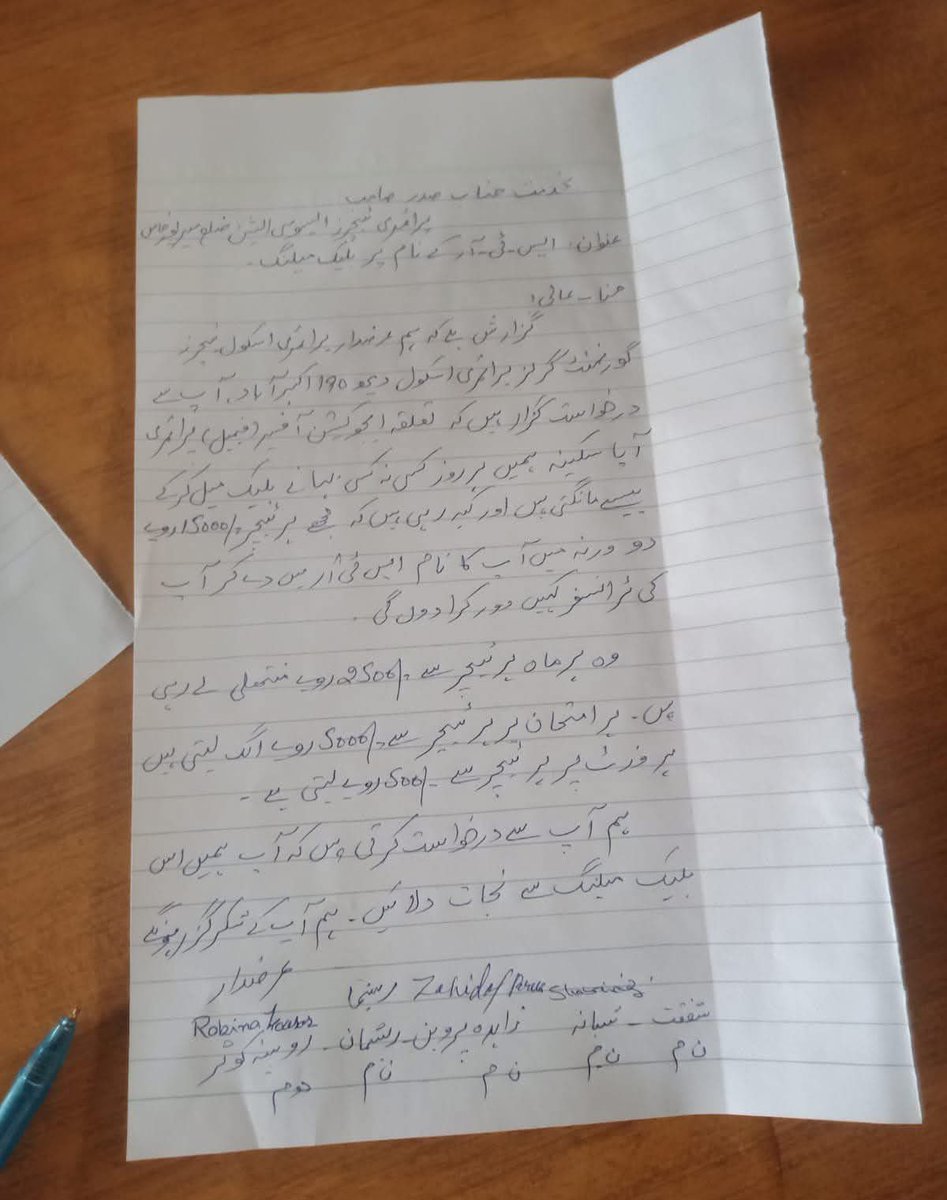 بخدمت جناب صدر صاحب
پرائمری ٹیچرز ایسوسی ایشن ضلع میرپورخاص
عنوان: ایس-ٹی-آر کے نام پر بلیک میلنگ۔
جناب عالی!
گزارش ہے کہ ہم عرضدار پرائمری اسکول ٹیچرز
گورنمنٹ گرلز پرائمری اسکول دیھو 190 اکبرآباد، آپ سے
درخواست گزار ہیں کہ تعلقہ ایجوکیشن آفیسر (فیمیل) پرائمری
آپا سکینہ ہمیں ہر روز کسی نہ کسی بہانے بلیک میل کرکے
پیسے مانگتی ہیں اور کہہ رہی ہیں کہ مجھے ہر ٹیچر 15000/- روپے
دو ورنہ میں آپ کا نام ایس ٹی آر میں دے کر آپ
کی ٹرانسفر کہیں دور کرا دوں گی۔
وہ ہر ماہ ہر ٹیچر سے 2500/- روپے منتھلی لے رہی
ہیں۔ ہر امتحان پر ہر ٹیچر سے 5000/- روپے الگ لیتی ہیں
ہر وزٹ پر ہر ٹیچر سے 500/- روپے لیتی ہے۔
ہم آپ سے درخواست کرتی ہیں کہ آپ ہمیں اس
بلیک میلنگ سے نجات دلائیں۔ ہم آپ کے شکرگزار ہونگے
عرضدار
Zahida
Robina
شفقت - شبانہ زاہدہ پروین - ریشمان - روبینہ کوثر